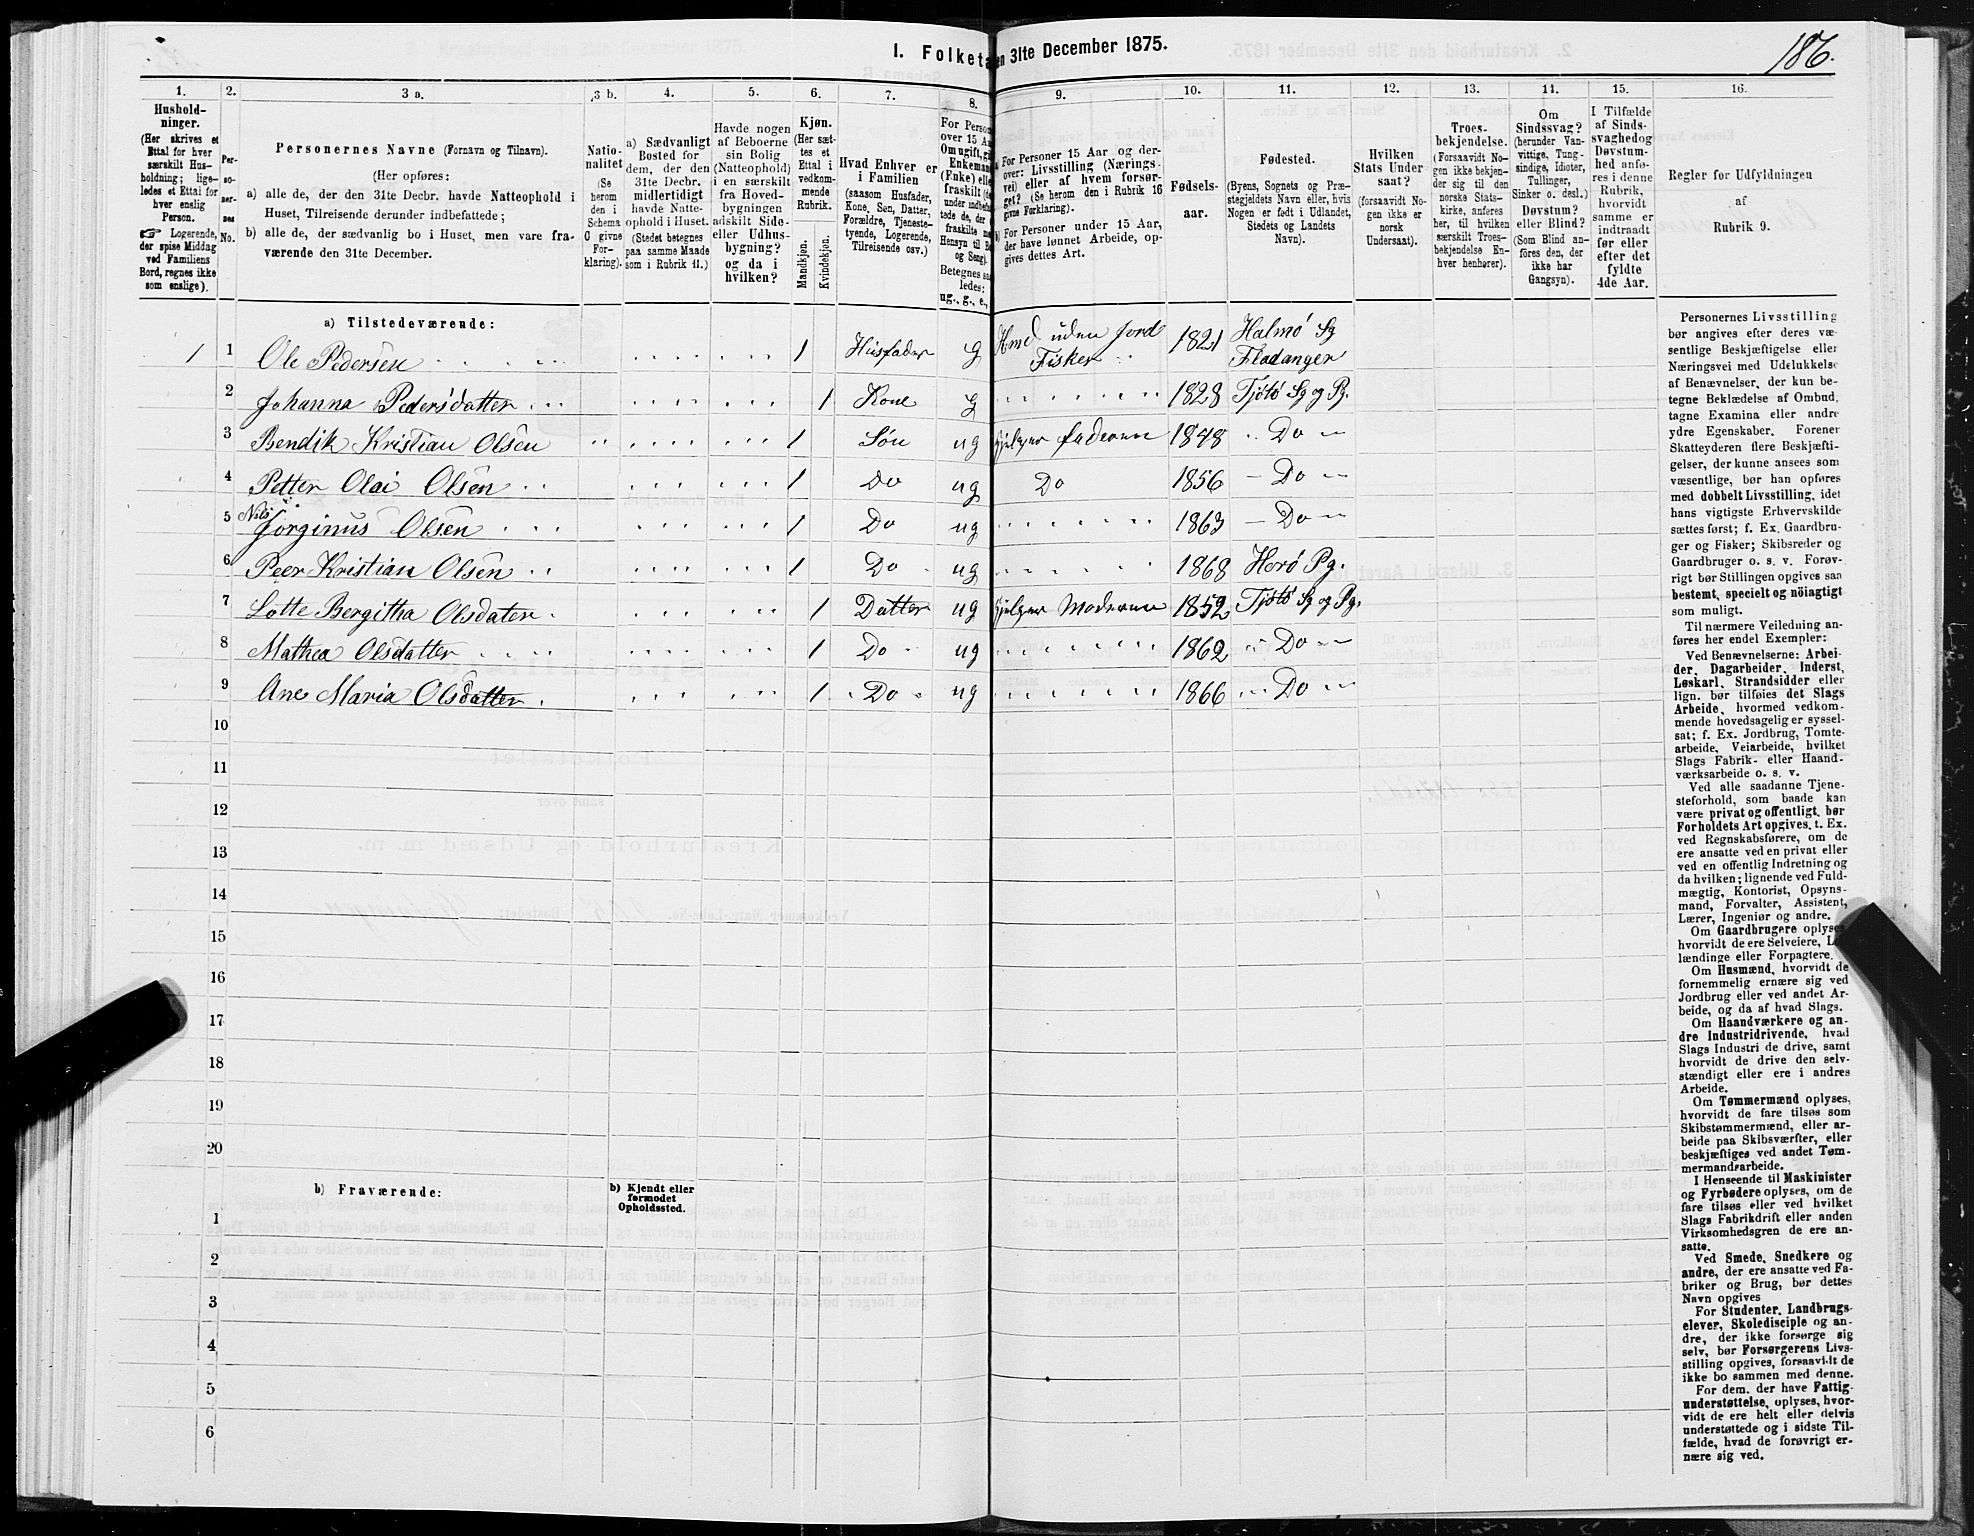 I. Folketa en 31te December 1875.
186.
1.
Hushold-
ninger.
(Her skrives et
Ettal for hver
særskilt Hus-
holdning; lige-
ledes et Ettal for
hver enslig
Person.
☞ Logerende,
der spise Middag
ved Familiens
Bord, regnes ikke
som enslige).
2.
Per-
so-
ner-
nes
No.
3 a.
Personernes Navne (Fornavn og Tilnavn).
(Her opføres:
a) alle de, der den 31te Decbr. havde Natteophold i
Huset, Tilreisende derunder indbefattede;
b) alle de, der sædvanlig bo i Huset, men vare fra-
værende den 31te December.
3 b.
Natio-
nalitet
(Se
herom
den i
Schema
C givne
For-
klaring).
4.
a) Sædvanligt
Bosted for
dem, der den
31te Decbr.
midlertidigt
havde Natte-
ophold i Huset.
(Stedet betegnes
paa samme Maade
som i Rubrik 11.)
5.
Havde nogen
af Beboerne
sin Bolig
(Natteophold)
i en særskilt
fra Hoved-
bygningen
adskilt Side-
eller Udhus-
bygning?
og da i
hvilken?
6.
Kjøn.
(Her sæt-
tes et
Ettal i
vedkom-
mende
Rubrik.
Mandkjøn.
Kvindekjøn.
7.
Hvad Enhver er
i Familien
(saasom Husfader,
Kone, Søn, Datter,
Forældre, Tjeneste-
tyende, Logerende,
Tilreisende osv.)
8.
For Person
over 15 Aa
Om ugift, gi
Enkeman
(Enke) elle
fraskilt (de
under indbefat
tede de, der e
fraskilte me
Hensyn til Bo
og Seng).
Betegnes saa
ledes:
ug., g., e.,
9.
a) For Personer 15 Aar og der-
over: Livsstilling (Nærings-
vei) eller af hvem forsør-
get? (Se herom den i Rubrik 16
givne Forklaring).
b) For Personer under 15 Aar,
der have lønnet Arbeide, op-
gives dettes Art.
10.
Fødsels-
aar.
11.
Fødested.
(Byens, Sognets og Præ-
stegjeldets Navn eller, hvis
Nogen er født i Udlandet,
Stedets og Landets
Navn).
12.
Hvilken
Stats Under
saat?
(forsaavidt No-
gen ikke er
norsk
Undersaat).
13.
Troes-
bekjendelse.
(Forsaavidt No-
gen ikke bekjen-
der sig til den
norske Stats-
kirke, anføres
her, til hvilken
særskilt Troes-
bekjendelse En-
hver henhører).
14.
Om
Sindssvag?
(herunder Van-
vittige, Tung-
sindige, Idioter,
Tullinger,
Sinker o. desl.)
Døvstum?
eller Blind?
(Som Blind an-
føres den, der
ikke har
Gangsyn).
15.
I Tilfælde
af Sinds-
svaghedog
Døvstum-
hed anfø-
res i denne
Rubrik,
hvorvidt
samme er
indtraadt
før eller
efter det
fyldte
4de Aar.
16.
Regler for Udfyldningen
af
Rubrik 9.
a) Tilstedeværende:
1 1 Ole Pedersen 1 Husfader g Hmd uden Jord Fisker 1821 Halmø Sg Fladanger
2 Johanna Pedersdatter 1 Kone g 1828 Tjøtø Sg og Pg.
3 Bendik Kristian Olsen 1 Søn ug hjelper faderen 1848 Do
4 Petter Olai Olsen 1 Do ug Do 1856 Do
5 Nils Jørginus Olsen 1 Do ug 1863 Do
6 Peer Kristian Olsen 1 Do ug 1868 Herø Pg.
7 Lotte Bergitha Olsdater 1 Datter ug hjelper Moderen 1852 Tjøtø Sg og Pg.
8 Mathea Olsdatter 1 Do ug 1862 Do
9 Ane Maria Olsdatter 1 Do ug 1866 Do
10
11
12
13
14
15
16
17
18
19
20
b) Fraværende:
b) Kjendt eller
formodet
Opholdssted.
1
2
3
4
5
6
Personernes Livsstilling
bør angives efter deres væ-
sentlige Beskjæftigelse eller
Næringsvei med Udelukkelse
af Benævnelser, der kun be-
tegne Beklædelse af Ombud,
tagne Examina eller andre
ydre Egenskaber. Forener
Skatteyderen flere Beskjæfti-
gelser, der kunne ansees som
væsentlige, bør han opføres
med dobbelt Livsstilling, idet
hans vigtigste Erhvervskilde
sættes først; f. Ex. Gaardbru-
ger og Fisker; Skibsreder og
Gaardbruger o. s. v. Forøv-
rigt bør Stillingen opgives saa
bestemt, specielt og nöiagtigt
som muligt.
Til nærmere Veiledning an-
føres her endel Exempler:
Ved Benævnelserne: Arbei-
der, Dagarbeider, Inderst,
Løskarl, Strandsidder eller
lign. bør tilføies det Slags
Arbeide, hvormed vedkom-
mende hovedsagelig er syssel-
sat; f. Ex. Jordbrug, Tomte-
arbeide, Veiarbeide, hvilket
Slags Fabrik- eller Haand-
værksarbeide o. s. v.
Ved alle saadanne Tjene-
steforhold, som baade kan
være privat og offentligt, bør
Forholdets Art opgives, t. Ex.
ved Regnskabsførere, om de
ere ansatte ved en privat eller
ved en offentlig Indretning og
da hvilken; lignende ved Fuld-
mægtig, Kontorist, Opsyns-
mand, Forvalter, Assistent,
Lærer, Ingeniør og andre.
Om Gaardbrugere oplyses
hvorvidt de ere Selveiere, L
lændinge eller Forpagtere.
Om Husmænd, hvorvidt de
fornemmelig ernære sig ved
Jordbrug eller ved andet Ar-
beide, og da af hvad Slags.
Om Haandværkere og an-
dre Industridrivende, hvad
Slags Industri de drive, samt
hvorvidt de drive den selv-
stændigt eller ere i andres
Arbeide.
Om Tømmermænd oplyses,
hvorvidt de fare tilsøs som
Skibstømmermænd, eller ar-
beide paa Skibsværfter, eller
beskjæftiges ved andet Tøm-
mermandsarbeide.
I Henseende til Maskinister
og Fyrbødere oplyses, om de
fare tilsøs eller ved hvilket
Slags Fabrikdrift eller anden
Virksomhedsgren de ere an-
satte.
Ved Smede, Snedkere og
andre, der ere ansatte ved Fa-
briker og Brug, bør dettes
Navn opgives
For Studenter, Landbrugs-
elever, Skoledisciple og an-
dre, der ikke forsørge sig
selv, bør Forsørgerens Livs-
stilling opgives, forsaavidt de
ikke bo sammen med denne.
For dem, der have Fattig-
understøttelse, oplyses, hvor-
vidt de ere helt eller delvis
understøttede og i sidste Til-
fælde, hvad de forøvrigt er-
nære sig ved.